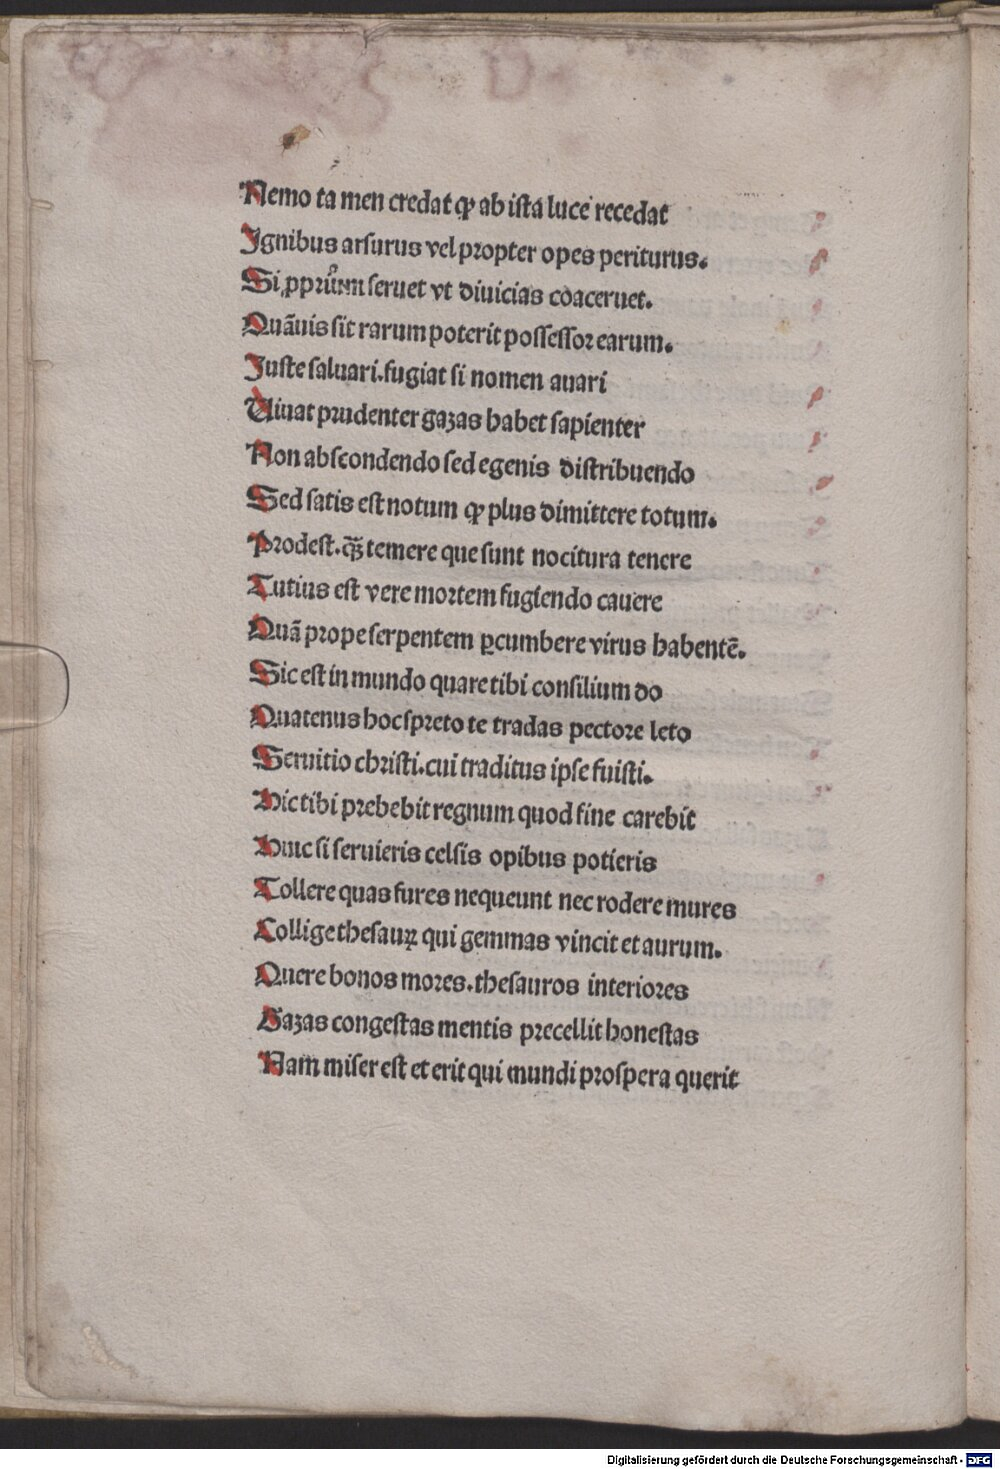 Nemo ta men credat ꝙ ab ista luce recedat
Ignibus arsurus vel propter opes periturus.
Si ꝓpriũm seruet vt diuicias coaceruet.
Quãuis sit rarum poterit possessor earum.
Juste saluari.fugiat si nomen auari
Uiuat prudenter gazas habet sapienter
Non abscondendo sed egenis distribuendo
Sed satis est notum ꝙ plus dimittere totum.
Prodest. temere que sunt nocitura tenere
Tutius est vere mortem fugiendo cauere
Quã prope serpentem ꝓcumbere virus habentẽ.
Sic est in mundo quare tibi consilium do
Quatenus hoc spreto te tradas pectore leto
Seruitio christi.cui traditus ipse fuisti.
Hic tibi prebebit regnum quod fine carebit
Huic si seruieris celsis opibus potieris
Tollere quas fures nequeunt nec rodere mures
Collige thesauꝝ qui gemmas vincit et aurum.
Quere bonos mores.thesauros interiores
Gazas congestas mentis precellit honestas
Nam miser est et erit qui mundi prospera querit
Digitalisierung gefördert durch die Deutsche Forschungsgemeinschaft - DFG